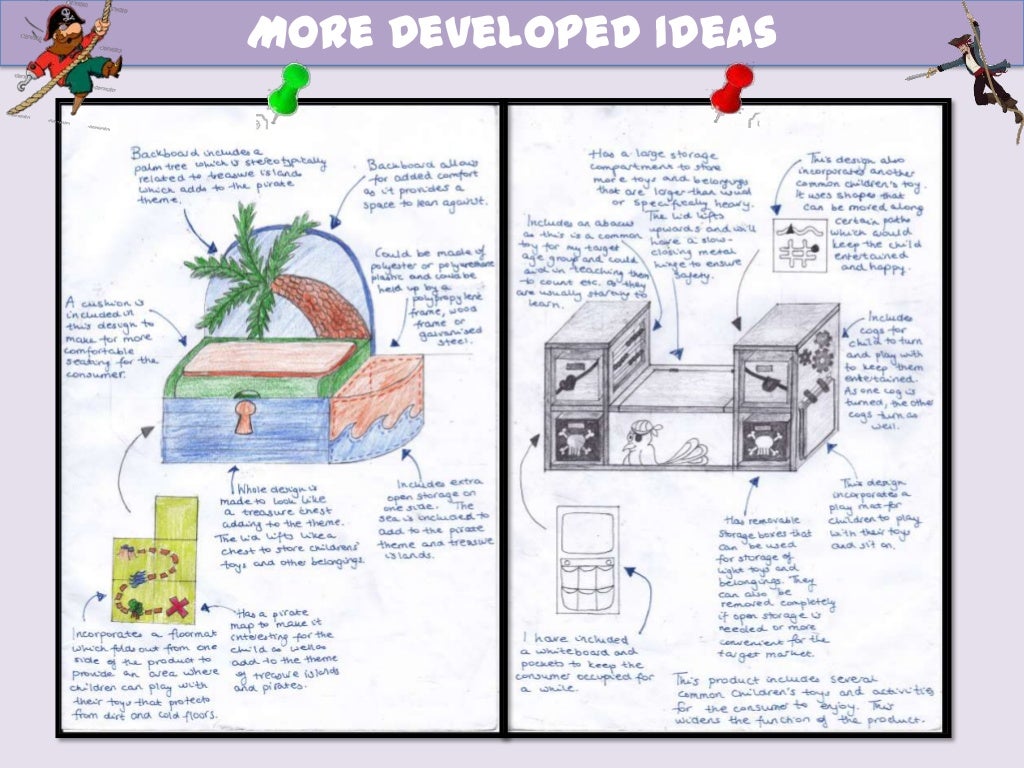 MORE DEVELOPED IDEAS
Backboard includes a
palm tree which is stereotypically
related to treasure islands
which adds to the pirate
theme.
Backboard allows
for added comfort
as it provides a
space to lean against.
Could be made of
polyester or polypropylene
plastic and could be
held up by a
polypropylene
frame, wood
frame or
galvanised
steel.
A cushion is
included in
this design to
make for more
comfortable
seating for the
consumer.
Whole design is
made to look like
a treasure chest
adding to the theme.
The lid lifts like a
chest to store childrens'
toys and other belongings.
Includes extra
open storage on
one side. The
sea is included to
add to the pirate
theme and treasure
islands.
Has a pirate
map to make it
interesting for the
child as well as
add to the theme
of treasure islands
and pirates.
Incorporates a floormat
which folds out from one
side of the product to
provide an area where
children can play with
their toys that protects
from dirt and cold floors.
Has a large storage
compartment to store
more toys and belongings
that are larger than usual
or specifically heavy.
The lid lifts
upwards and will
have a slow-
closing metal
hinge to ensure
safety.
This design also
incorporates another
common children's toy.
It uses shapes that
can be moved along
certain paths
which would
keep the child
entertained
and happy.
Includes an abacus
as this is a common
toy for my target
age group and could
aid in teaching them
to count etc. as they
are usually starting to
learn.
Includes
cogs for
child to turn
and play with
to keep them
entertained.
As one cog is
turned, the other
cogs turn as
well.
This design
incorporates a
play mat for
children to play
with their toys
and sit on.
Has removable
storage boxes that
can be used
for storage of
light toys and
belongings. They
can also be
removed completely
if open storage is
needed or more
convenient for the
target market.
I have included
a whiteboard and
pockets to keep the
consumer occupied for
a while.
This product includes several
common children's toys and activities
for the consumer to enjoy. This
widens the function of the product.